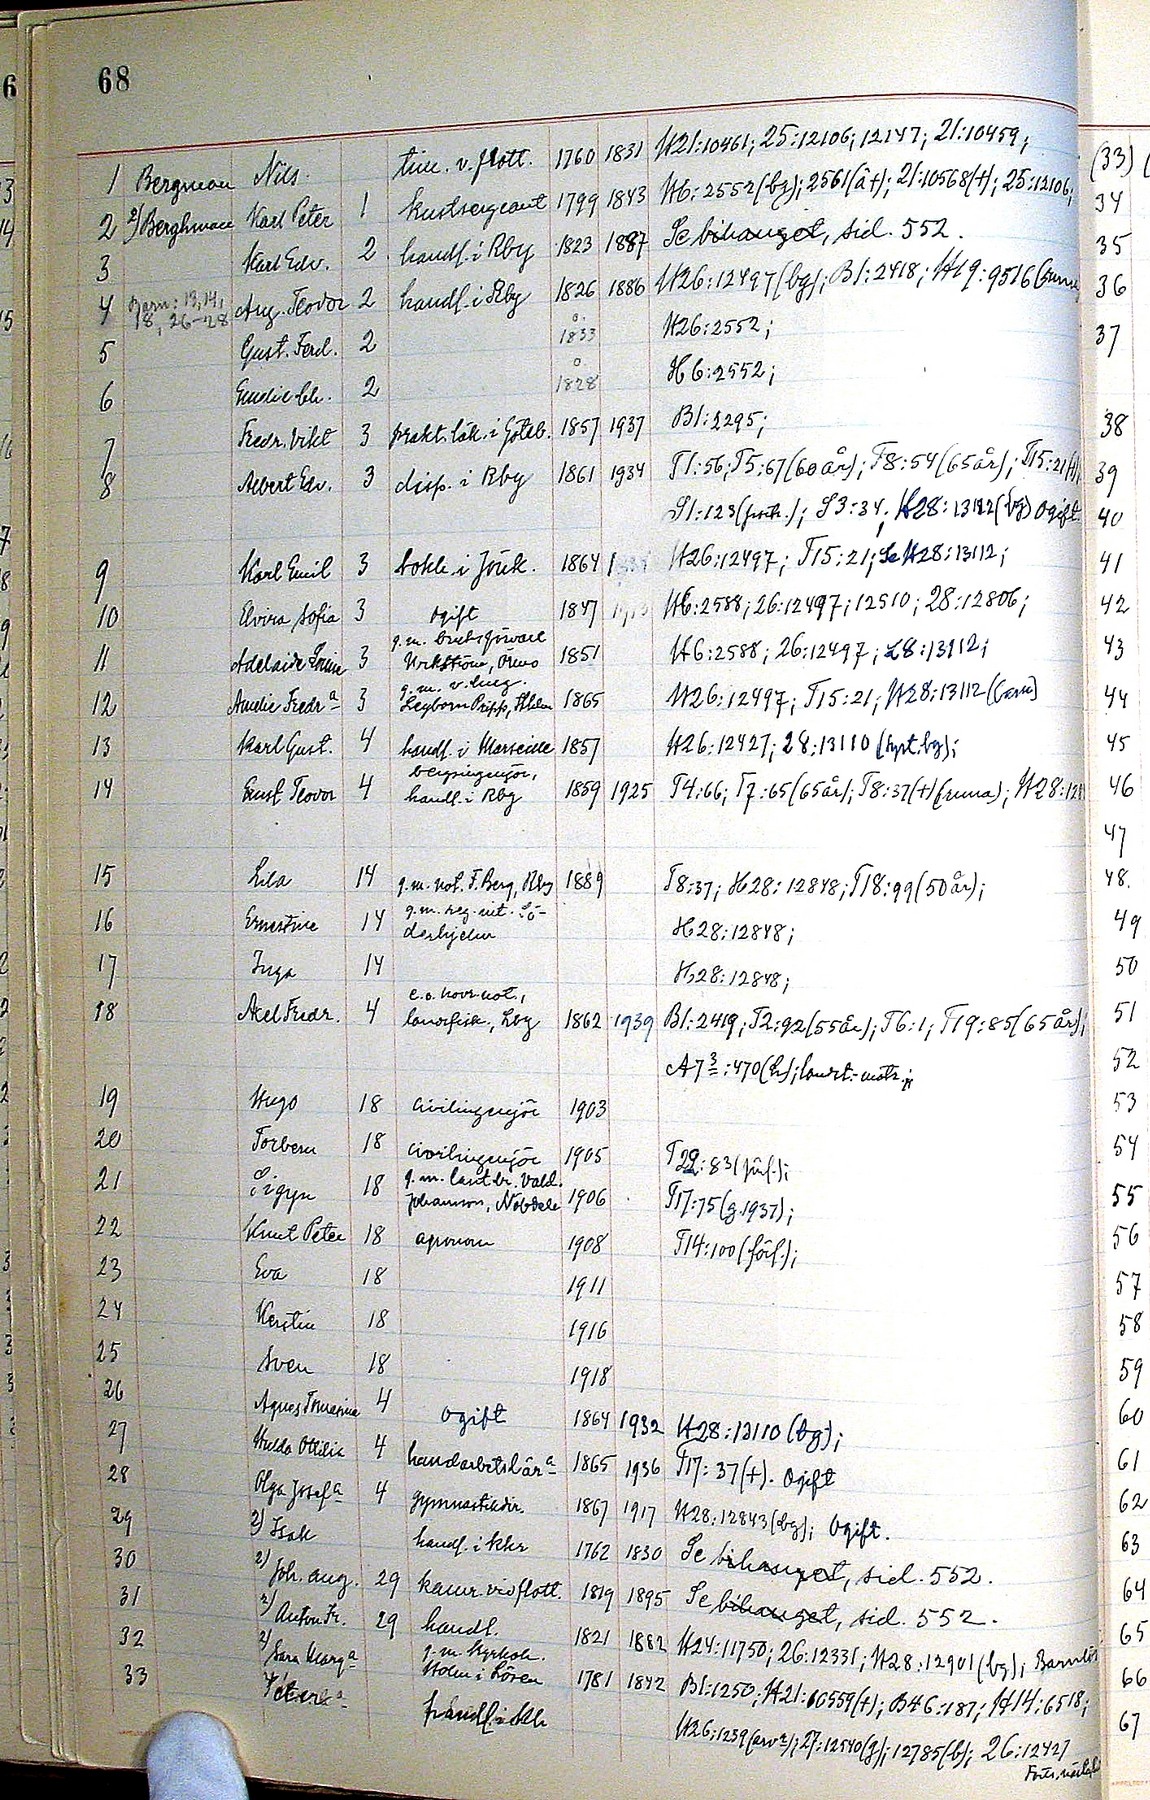 68
1 Bergman Nils. tim. v. flott. 1760 1831 H21:10461; 25:12106; 12147; 21:10459;
2 2) Berghman Karl Peter 1 kustsergeant 1799 1843 H6:2552(bg); 2561(ät); 21:10568(†); 25:12106;
3 Karl Edv. 2 handl. i Rby 1823 1887 Se bihanget, sid. 552.
4 Barn: 13, 14, 18, 26-28 Aug. Teodor 2 handl. i Rby 1826 1886 H26:12497(bg); B1:2418; H19:9516
5 Gust. Ferd. 2 o. 1833 H26:2552;
6 2 o 1828 H6:2552;
7 Fredr. Vikt 3 prakt. läk. i Göteb. 1857 1937 B1:2295;
8 Albert Edv. 3 disp. i Rby 1861 1934 T1:56; T5:67(60 år); T8:54(65 år); T15:21(†);
S1:123; S3:34; H28:13112(bg) Ogift
9 Karl Emil 3 bokh. i Jönk. 1864 H26:12497; T15:21; Se H28:13112;
10 Elvira Sofia 3 ogift 1847 H6:2588; 26:12497; 12510; 28:12806;
11 Adelaide 3 g.m. 1851 H6:2588; 26:12497; 28:13112;
12 Amelie Fredr:a 3 g.m. v. häng. Leyborn Pripp, Sthlm 1865 H26:12497; T15:21; H28:13112
13 Karl Gust. 4 handl. i Marseille 1857 H26:12427; 28:13110
14 Ernst Teodor 4 bergsingenjör, handl. i Rby 1859 1925 T4:66; T7:65(65 år); T8:37(†)(runa); H28:128
15 Lisa 14 g.m. not. F. Berg, Rby 1889 T8:37; H28:12848; T18:99(50 år);
16 Ernestine 14 g.m. Söderhjelm H28:12848;
17 Inga 14 H28:12848;
18 Axel Fredr. 4 e.o. hovr.not., landsfisk., Lby 1862 1939 B1:2419; T2:92(55 år); T6:1; T19:85(65 år);
A7 3:470(h);
19 Hugo 18 civilingenjör 1903
20 Torbern 18 civilingenjör 1905 T22:83(förl.);
21 Sigyn 18 g.m. lantbr. Vald. Johansson, Nöbbele 1906 T17:75(g.1937);
22 Knut Peter 18 agronom 1908 T14:100(förl.);
23 Eva 18 1911
24 Kerstin 18 1916
25 Sven 18 1918
26 Agnes Tomasina 4 ogift 1864 1932 H28:13110(bg);
27 Hulda Ottilia 4 handarbetslär:a 1865 1936 T17:37(†). Ogift
28 Olga Josef:a 4 gymnastikdir. 1867 1917 H28:12843(bg); Ogift.
29 2) Isak handl. i Kkr 1762 1830 Se bihanget, sid. 552.
30 2) Joh. Aug. 29 kamr. vid flott. 1819 1895 Se bihanget, sid. 552.
31 2) Anton Fr. 29 handl. 1821 1882 H24:11750; 26:12331; H28:12901(bg);
32 2) Sara Marg:a g.m. kyrkoh. Holm i Lösen 1781 1842 B1:1250; H21:10559(†); B46:187; H14:6518;
33 H26:1239; 27:12540(g); 12785(b); 26:12427
(33)
34
35
36
37
38
39
40
41
42
43
44
45
46
47
48.
49
50
51
52
53
54
55
56
57
58
59
60
61
62
63
64
65
66
67